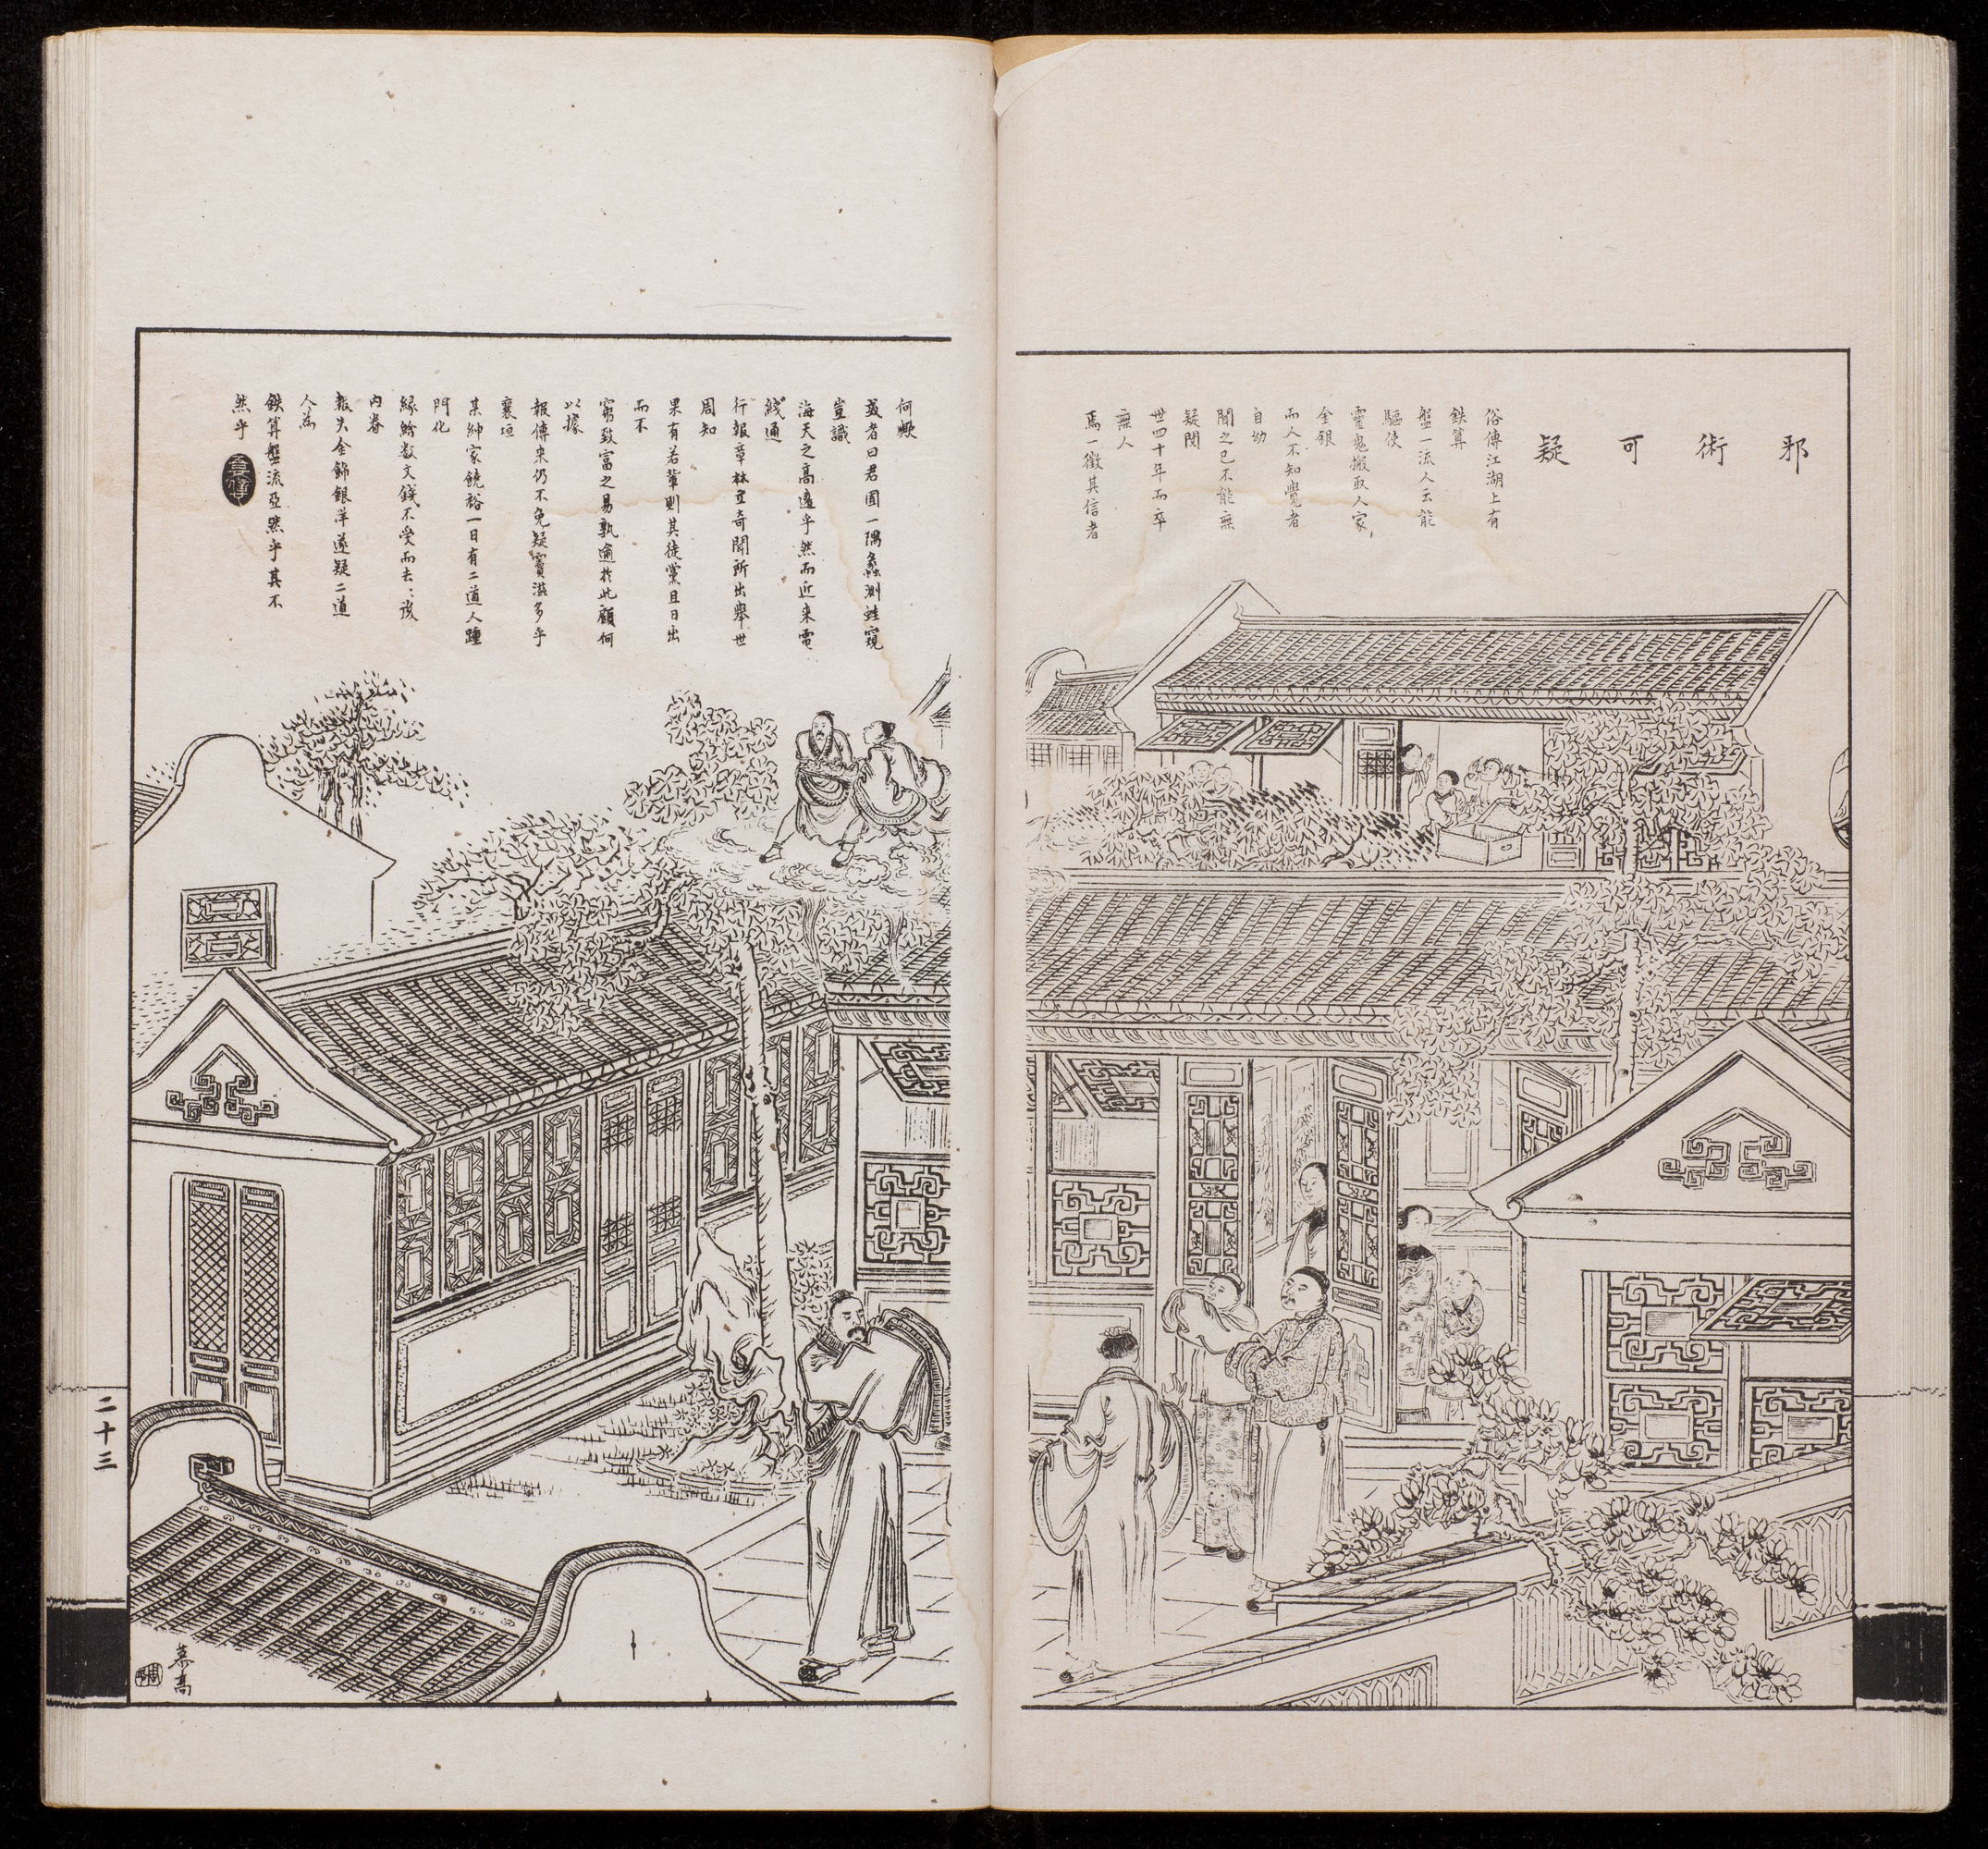 邪術可疑
俗傳江湖上有
鉄算
盤一流人云能
驅使
靈鬼搬取人家
金銀
而人不知覺者
自幼
聞之已不能無
疑閱
世四十年而卒
無人
焉一徵其信者
何歟
或者曰君囿一隅蠡測蛙窺
豈識
海天之高遠乎然而近來電
綫通
行報章林立奇聞所出舉世
周知
果有若輩則其徒黨且日出
而不
窮致富之易孰逾於此顧何
以據
報傳來仍不免疑竇滋多乎
襄垣
某紳家饒裕一日有二道人踵
門化
緣給数文錢不受而去
內眷
報失金飾銀洋遂疑二道
人為
鉄算盤流亞然乎其不
然乎
二十三
慕高